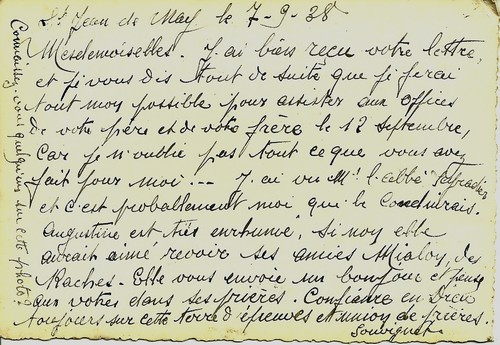 St Jean de May le 7-9-38
Mesdemoiselles. J'ai bien reçu votre lettre,
et je vous dis tout de suite que je ferai
tout mon possible pour assister aux offices
de votre père et de votre frère le 12 septembre,
car je n'oublie pas tout ce que vous avez
fait pour moi --- J'ai vu Mr l'abbé
et c'est probablement moi que le conduirais.
Augustine est très enrhumé, si non elle
aurait aimé revoir ses amies Mialoy, des
Raches. Elle vous envoie un bonjour et pense
aux votres dans ses prières. Confiance en Dieu
toujours sur cette terre d'épreuves et union de prières.
Souvignet
Connaissez-vous quelqu'un sur cette photo?